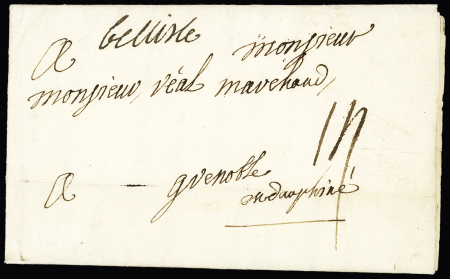 A bellisle monsieur
monsieur, véal marchand,
A grenoble
en dauphiné